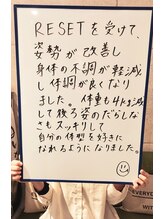 RESETを受けて、
姿勢が改善し
身体の不調が軽減
し体調が良くなり
ました。体重も4kg減
して後ろ姿のだらしな
さもスッキリして
自分の体型を好きに
なれるようになりました。